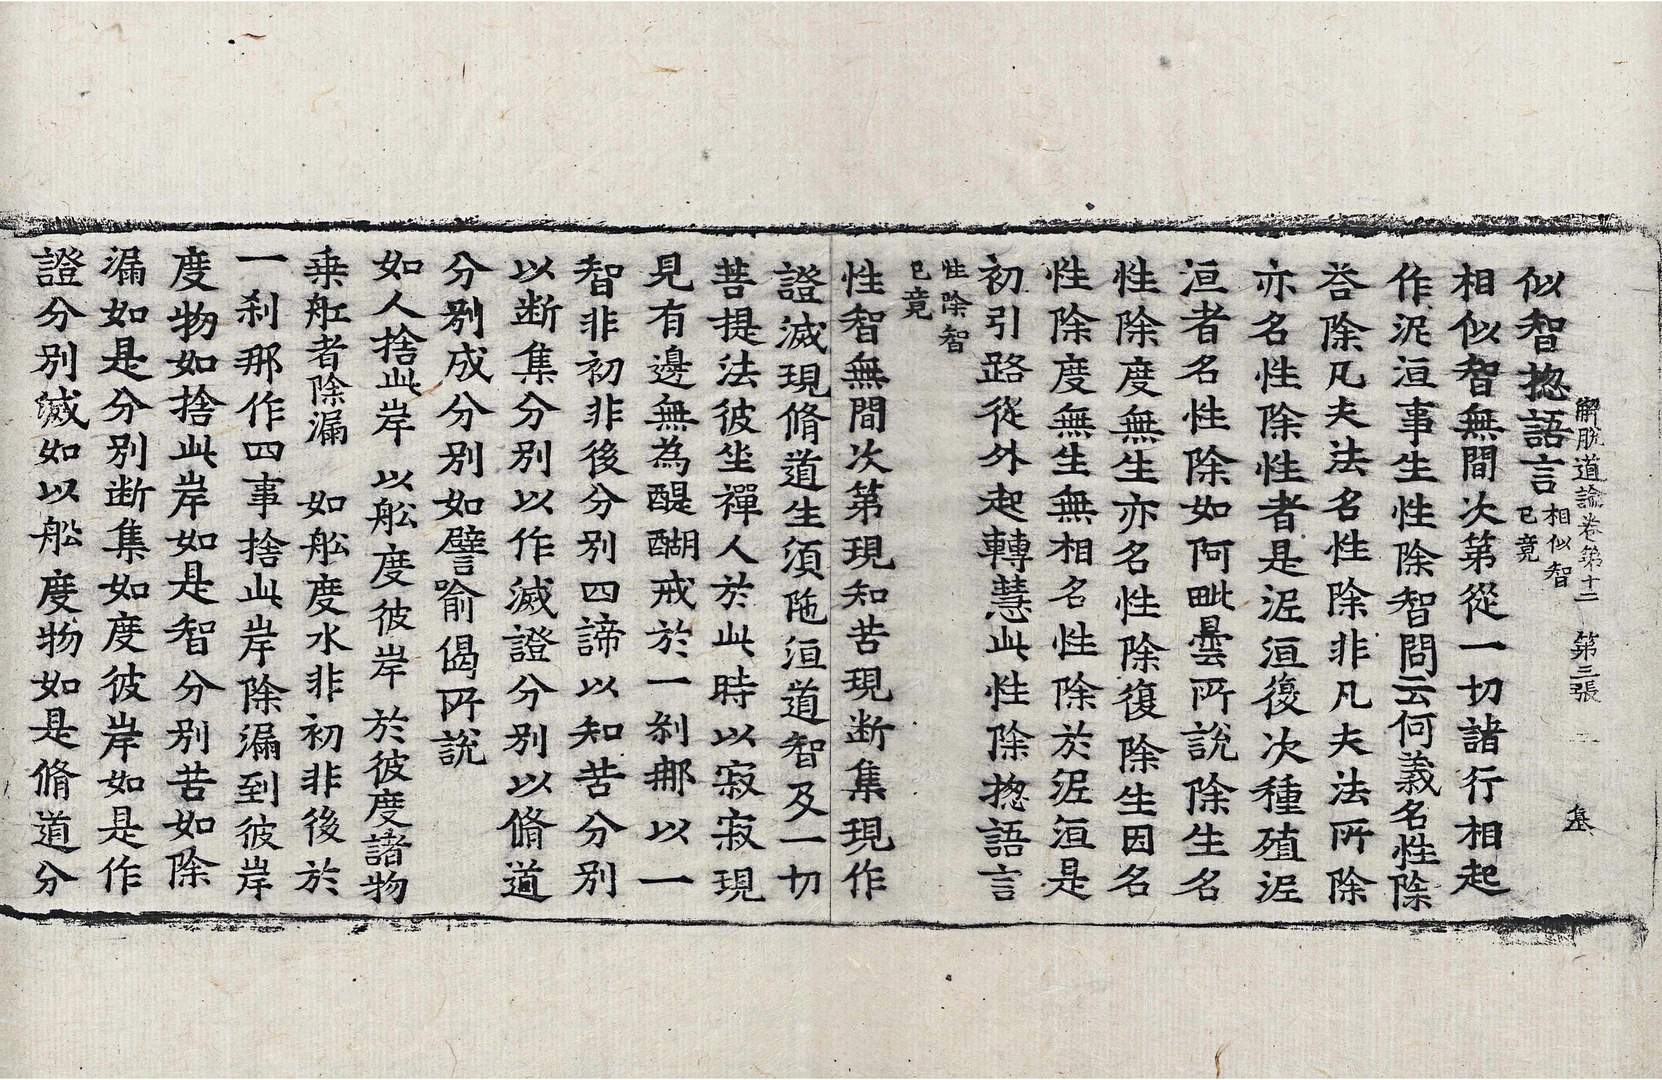 解脫道論卷第十二　第三張　基
似智揔語言相似智已竟
相似智無間次第從一切諸行相起
作泥洹事生性除智問云何義名性除
荅除凡夫法名性除非凡夫法所除
亦名性除性者是泥洹復次種殖泥
洹者名性除如阿毗曇所說除生名
性除度無生亦名性除復除生因名
性除度無生無相名性除於泥洹是
初引路從外起轉慧此性除揔語言
性除智已竟
性智無間次第現知苦現断集現作
證滅現脩道生須陁洹道智及一切
菩提法彼坐禪人於此時以寂寂現
見有邊無為醍醐戒於一刹那以一
智非初非後分別四諦以知苦分別
以断集分別以作滅證分別以脩道
分別成分別如譬喻偈所說
如人捨此岸　以舩度彼岸　於彼度諸物
乗舩者除漏　如舩度水非初非後於
一刹那作四事捨此岸除漏到彼岸
度物如捨此岸如是智分別苦如除
漏如是分別断集如度彼岸如是作
證分別滅如以舩度物如是脩道分